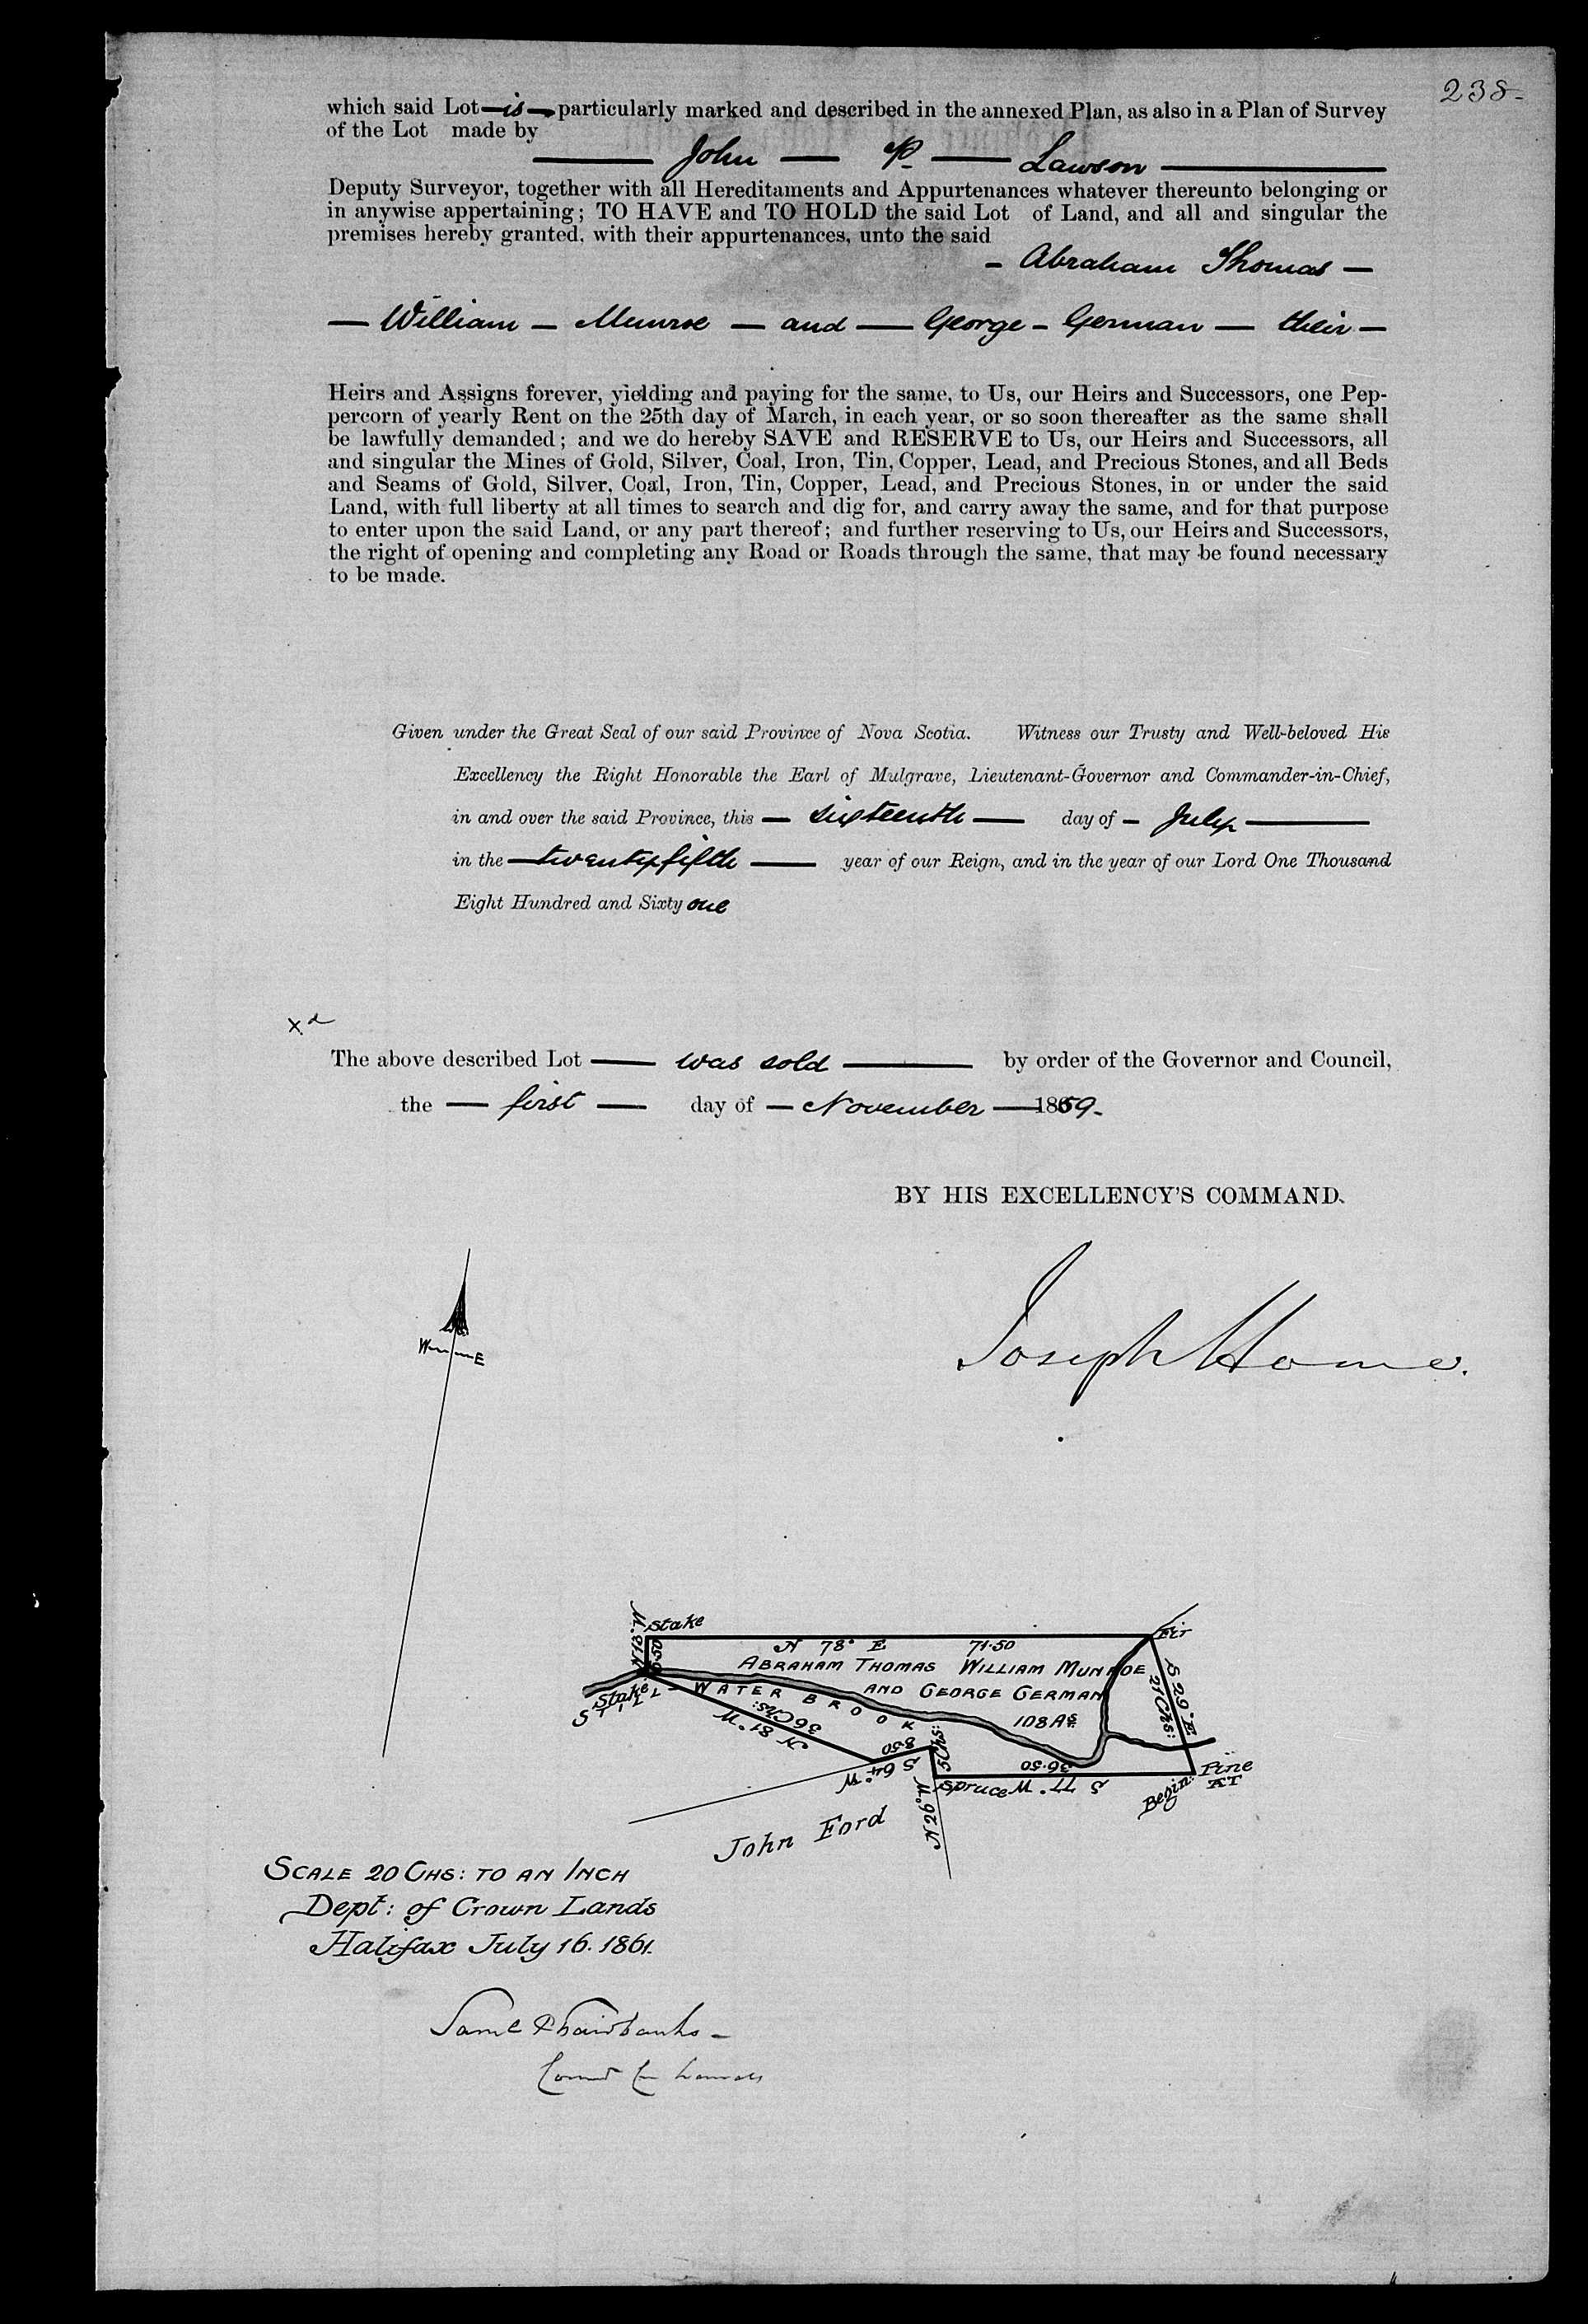 238-
which said Lot — is — particularly marked and described in the annexed Plan, as also in a Plan of Survey
of the Lot made by
John — P — Lawson
Deputy Surveyor, together with all Hereditaments and Appurtenances whatever thereunto belonging or
in anywise appertaining; TO HAVE and TO HOLD the said Lot of Land, and all and singular the
premises hereby granted, with their appurtenances, unto the said
- Abraham Thomas -
— William — Munroe — and — George - German — their —
Heirs and Assigns forever, yielding and paying for the same, to Us, our Heirs and Successors, one Pep-
percorn of yearly Rent on the 25th day of March, in each year, or so soon thereafter as the same shall
be lawfully demanded; and we do hereby SAVE and RESERVE to Us, our Heirs and Successors, all
and singular the Mines of Gold, Silver, Coal, Iron, Tin, Copper, Lead, and Precious Stones, and all Beds
and Seams of Gold, Silver, Coal, Iron, Tin, Copper, Lead, and Precious Stones, in or under the said
Land, with full liberty at all times to search and dig for, and carry away the same, and for that purpose
to enter upon the said Land, or any part thereof; and further reserving to Us, our Heirs and Successors,
the right of opening and completing any Road or Roads through the same, that may be found necessary
to be made.
Given under the Great Seal of our said Province of Nova Scotia. Witness our Trusty and Well-beloved His
Excellency the Right Honorable the Earl of Mulgrave, Lieutenant-Governor and Commander-in-Chief,
in and over the said Province, this — sixteenth — day of — July —
in the — twenty fifth — year of our Reign, and in the year of our Lord One Thousand
Eight Hundred and Sixty one
xd
The above described Lot — was sold — by order of the Governor and Council,
the — first — day of — November — 1859.
BY HIS EXCELLENCY'S COMMAND.
Joseph Howe.
W E
Stake
Fir
N 13° W
N 78° E 71.50
ABRAHAM THOMAS WILLIAM MUNROE
AND GEORGE GERMAN
108 As.
S 29° E
21 Chs:
Stake
STILL - WATER BROOK
36 Chs:
N 81° W
8.50
S 64° W
5 Chs:
N 26° W
36.50
S 77° W
Spruce
Begin:
Pine
AT
John Ford
SCALE 20 CHS: TO AN INCH
Dept: of Crown Lands
Halifax July 16. 1861.
Saml P Fairbanks -